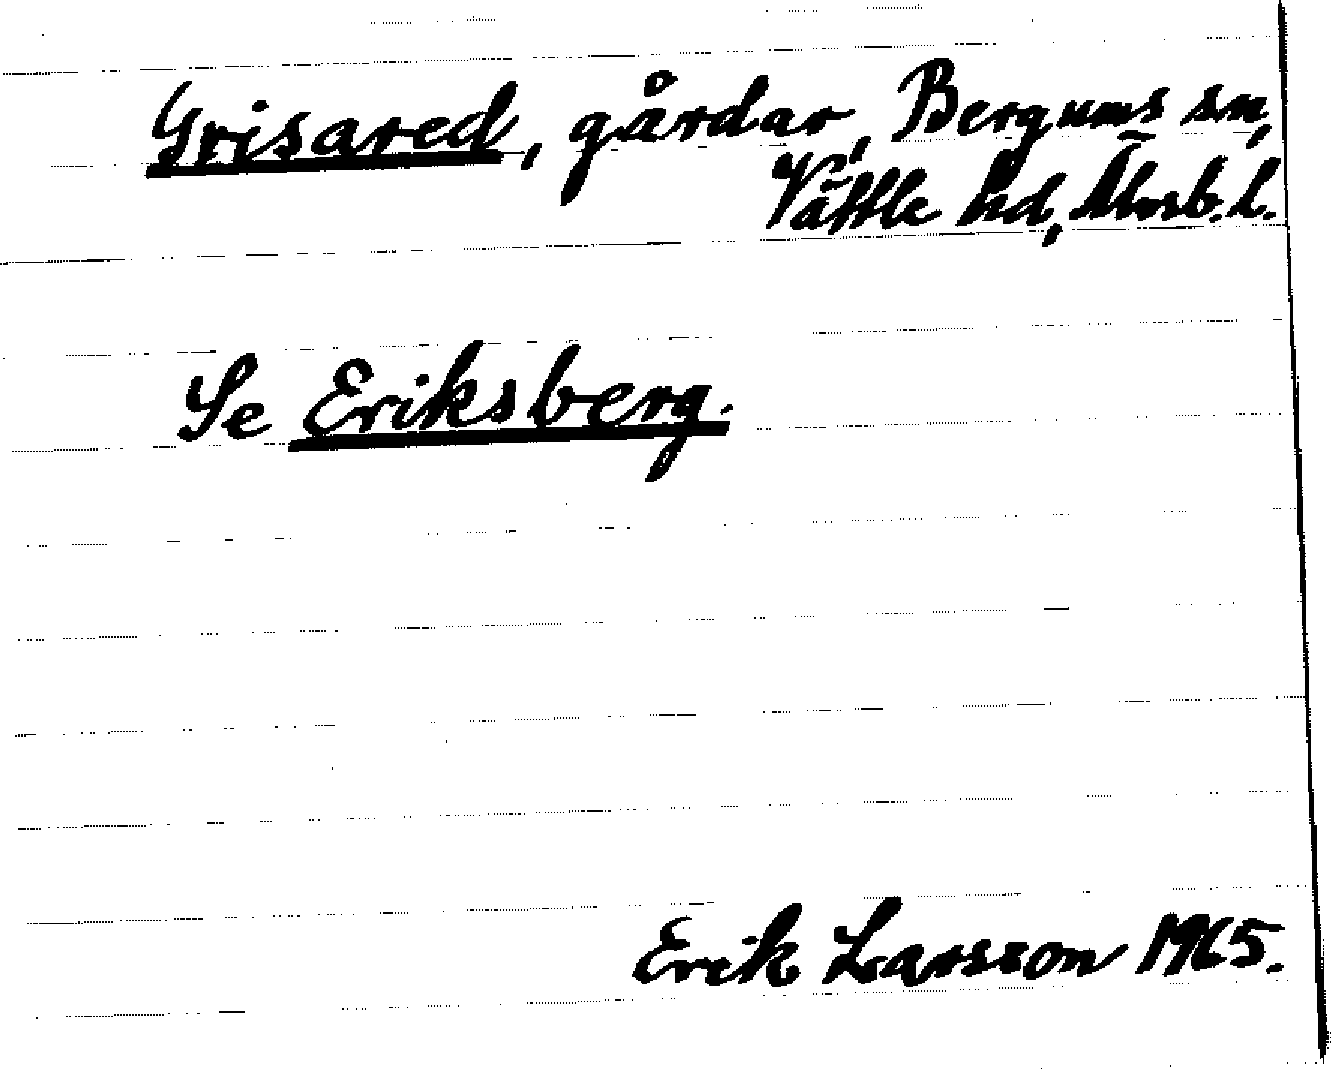 Grisared, gårdar, Bergums sn,
Vättle hd, Älvsb. l.
Se Eriksberg.
Erik Larsson 1965.